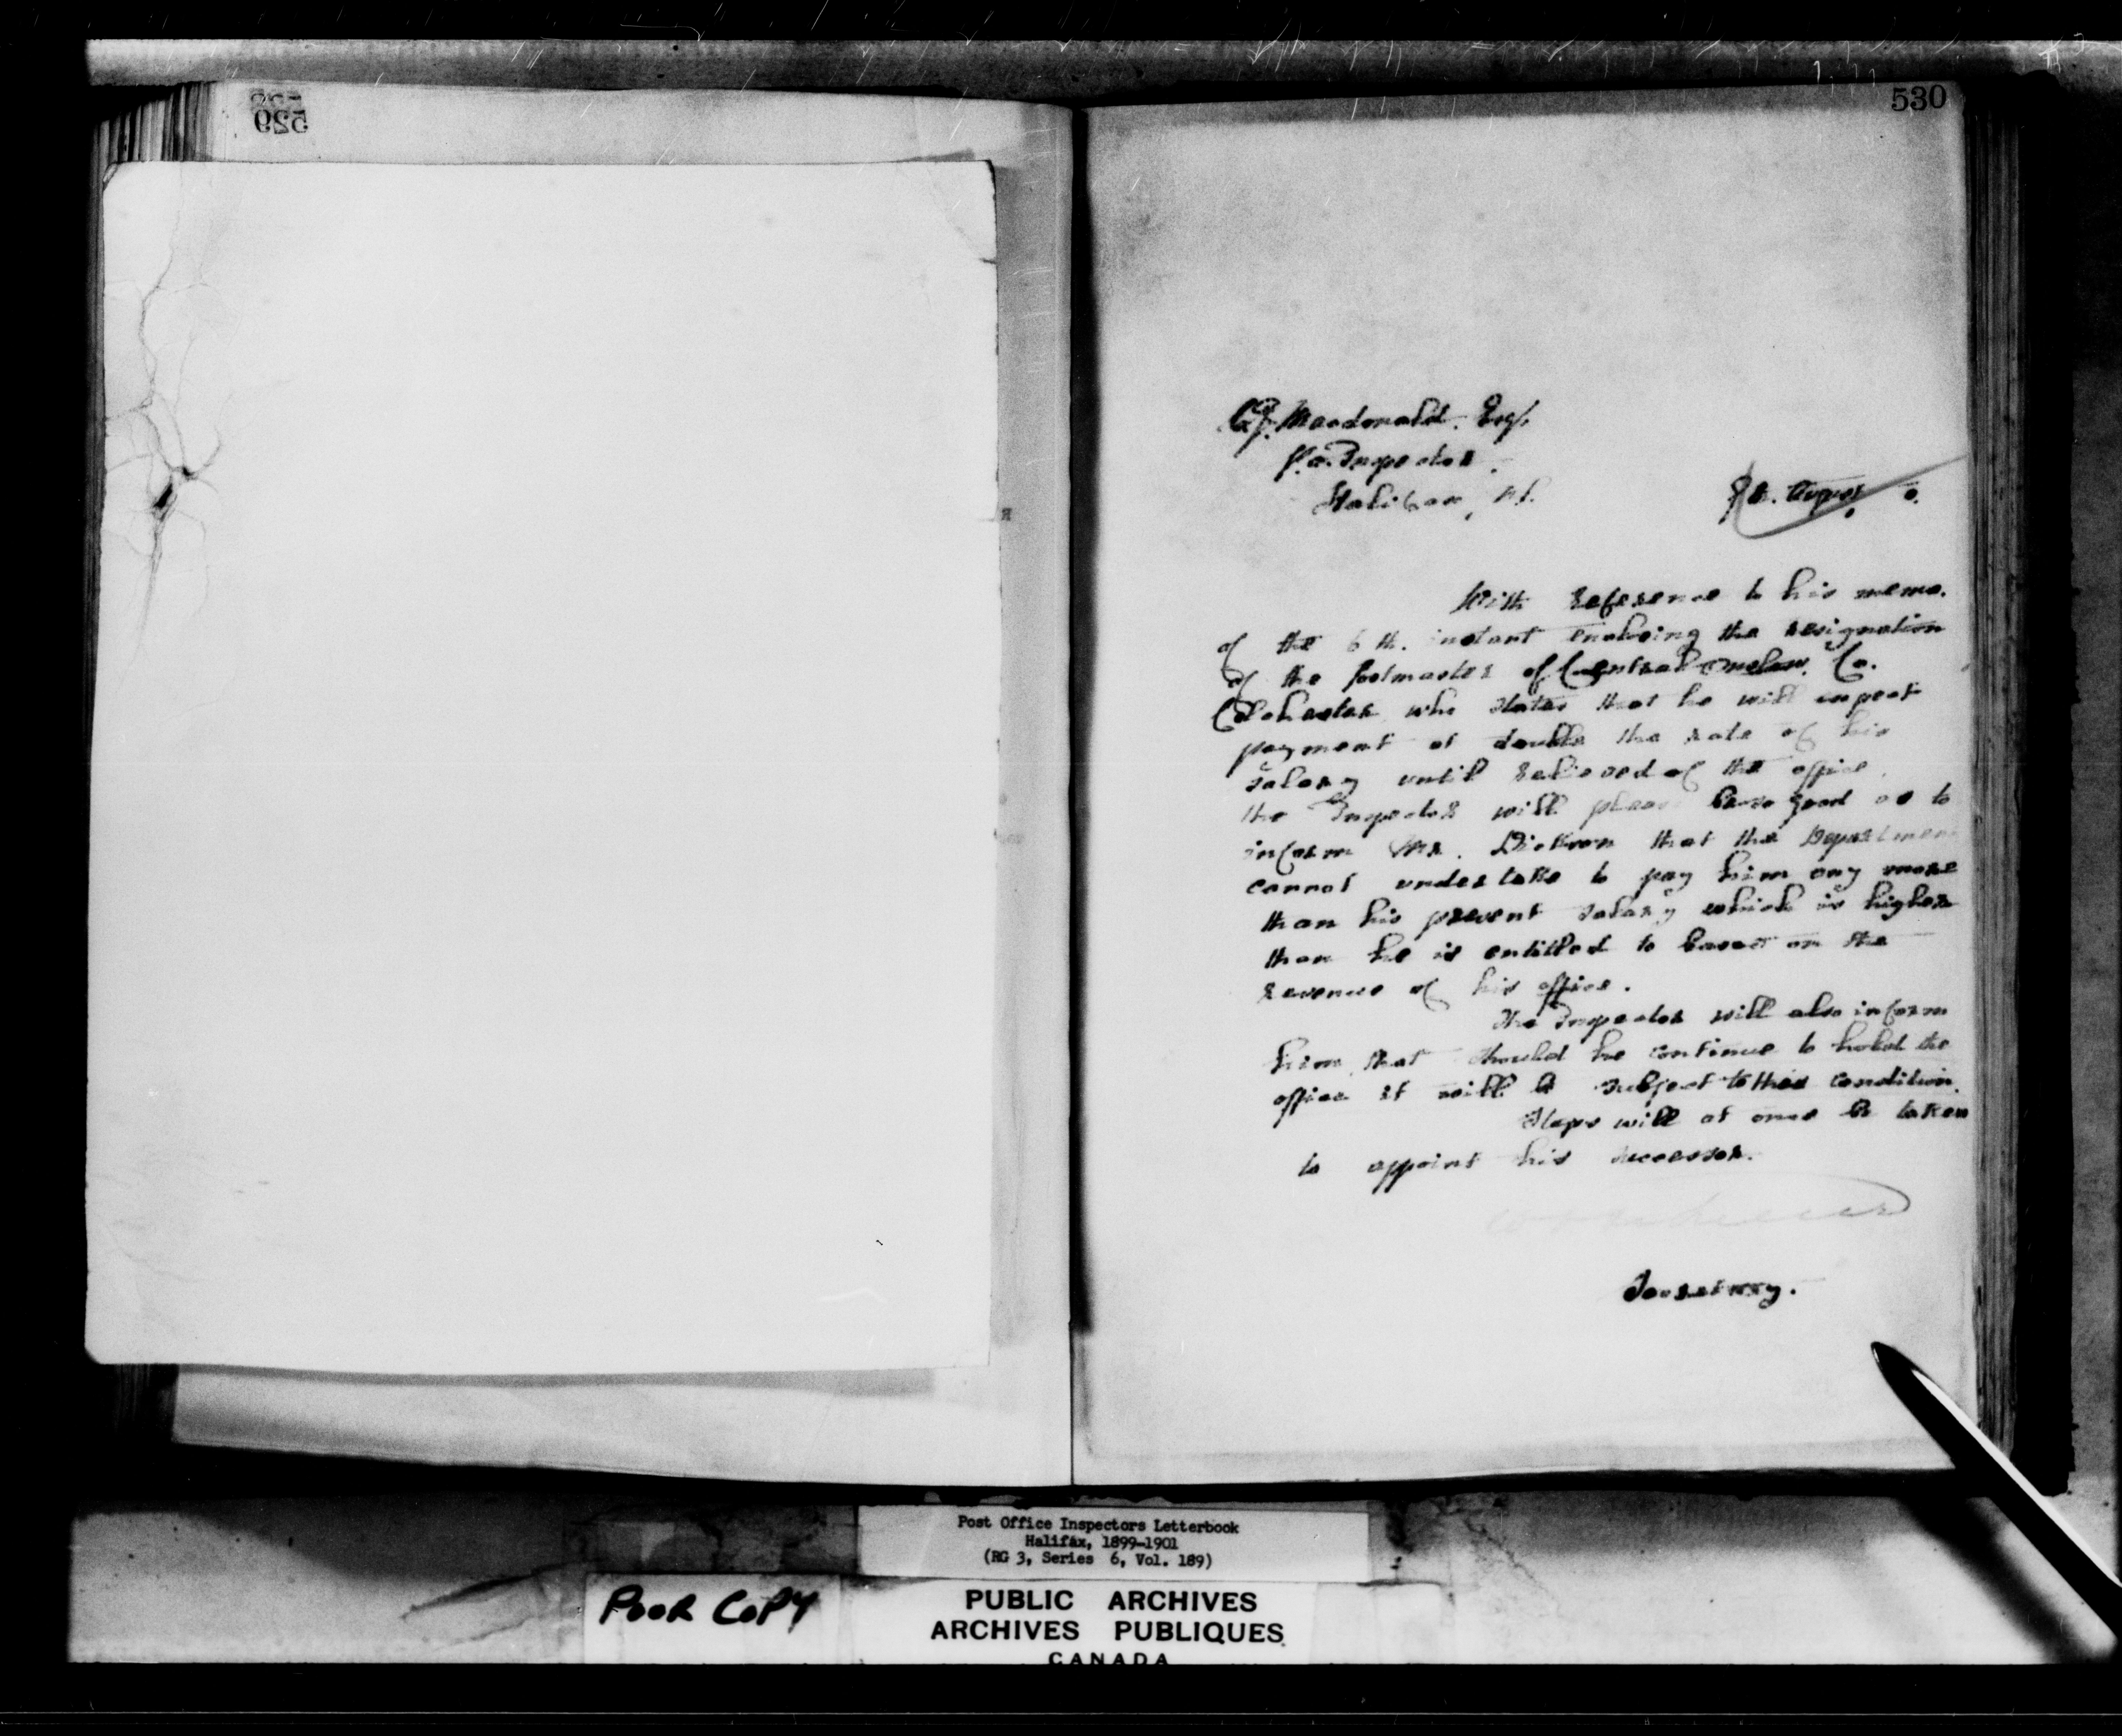 529
530
Macdonald. Esq.
P.O. Inspector.
Halifax, N.S.
August
With reference to his memo.
of the 6th. instant enclosing the resignation
of the Postmaster of Central Onslow, Co.
Colchester, who states that he will expect
payment at double the rate of his
salary until relieved of the office,
the Inspector will please be so good as to
inform Mr. Dickson that the Department
cannot undertake to pay him any more
than his present salary which is higher
than he is entitled to based on the
revenue of his office.
The Inspector will also inform
him that should he continue to hold the
office it will be subject to this condition.
Steps will at once be taken
to appoint his successor.
Secretary.
Post Office Inspectors Letterbook
Halifax, 1899-1901
(RG 3, Series 6, Vol. 189)
POOR COPY
PUBLIC ARCHIVES
ARCHIVES PUBLIQUES
CANADA